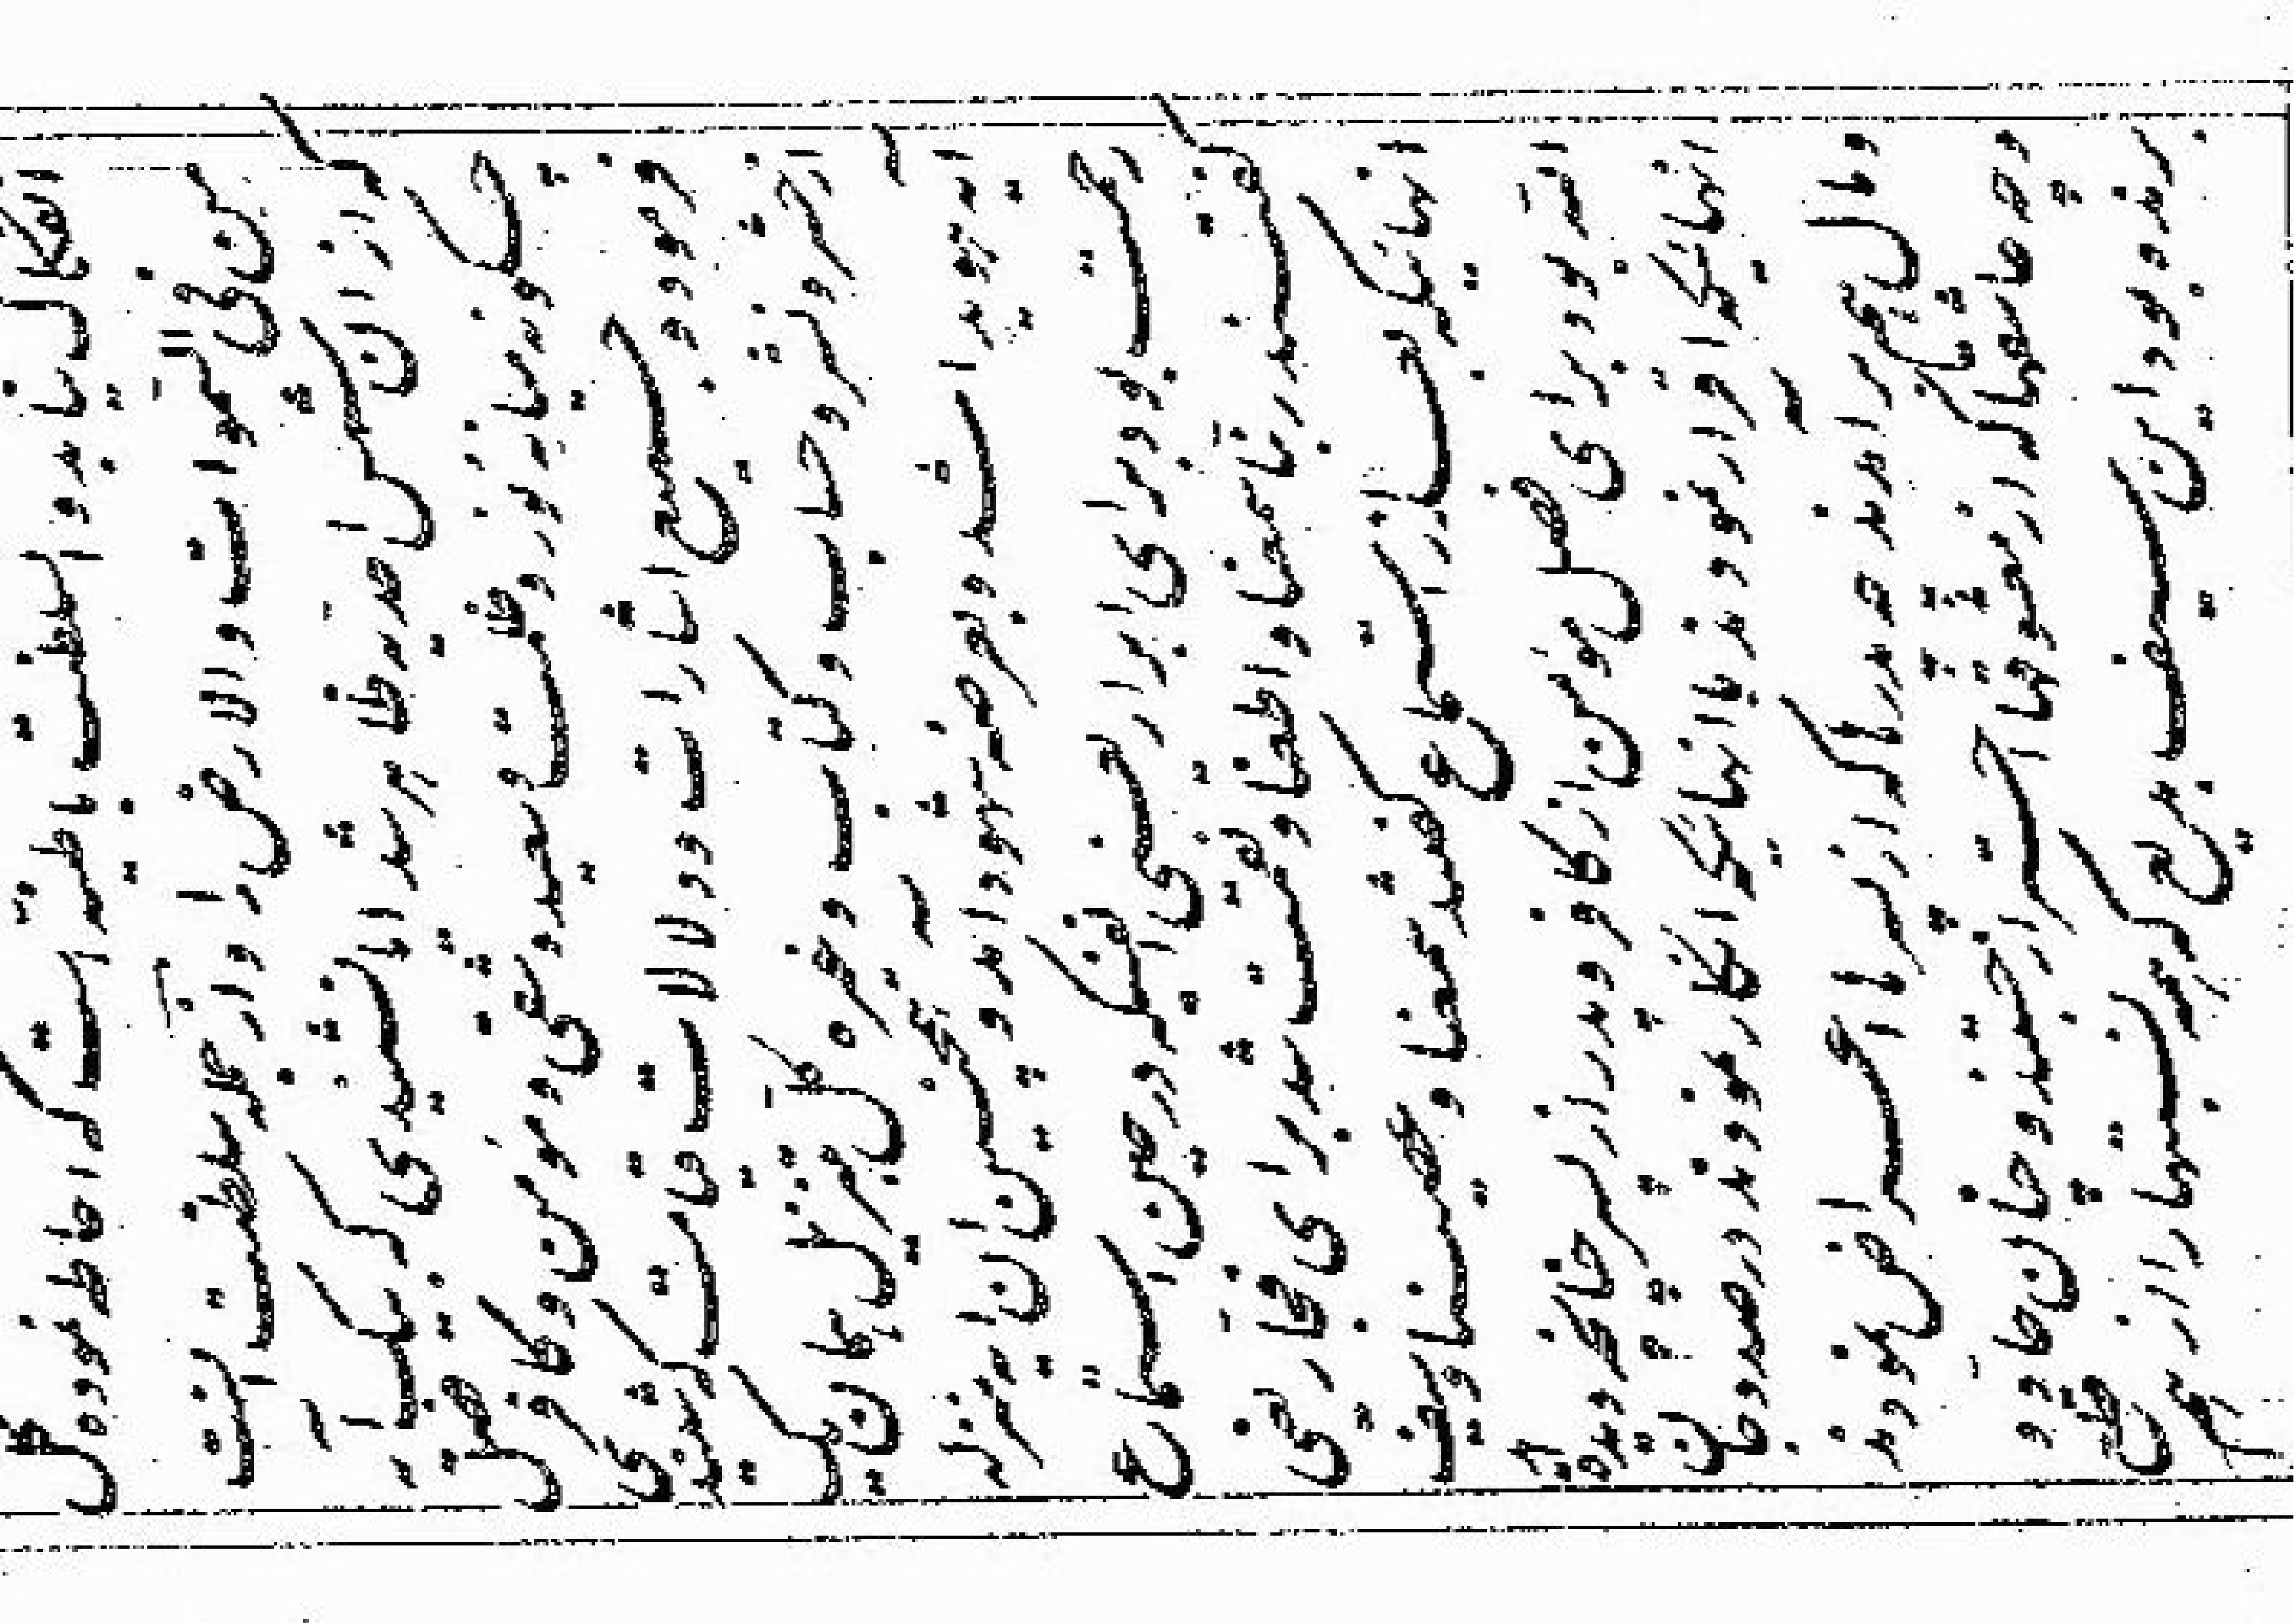 و سلطنت باطنیه است که احاطه نموده کل
من فی السموات والارض را و از جمله سلطنت انست
که از ان شمس احدیه ظاهر شد ایا نشنیدی که بیک آیه
چگونه میانه نور و ظلمت و سعید و شقی و مؤمن و کافر فصل
فرمود و جمیع اشارات و دلالات قیامت که شنیدی
از حشر و نشر و حساب و کتاب و غیره کل بتنزیل همان یک
آیه هویدا شد و بعرصه شهود آمد و همچنین ان آیه منزله
رحمت بود برای ابرار یعنی انفسیکه در حین استماع
گفتند ربنا سمعنا و اطعنا و نقمت شد برای فجار یعنی
انهائیکه بعد از استماع گفتند سمعنا و عصینا و سیف
الله بود برای فصل مؤمن از کافر و پدر از پسر چنانچه دیده‌اید
انهائیکه اقرار نمودند با انهائیکه انکار نمودند در صدد جان
و مال هم برآمدند چه پدرها که از پسرها اعراض نمودند
و چه عاشقها که از معشوقها احتراز جستند و چنان حاد و
برنده بود این سیف بدیع که همه نسبتها را از هم قطع